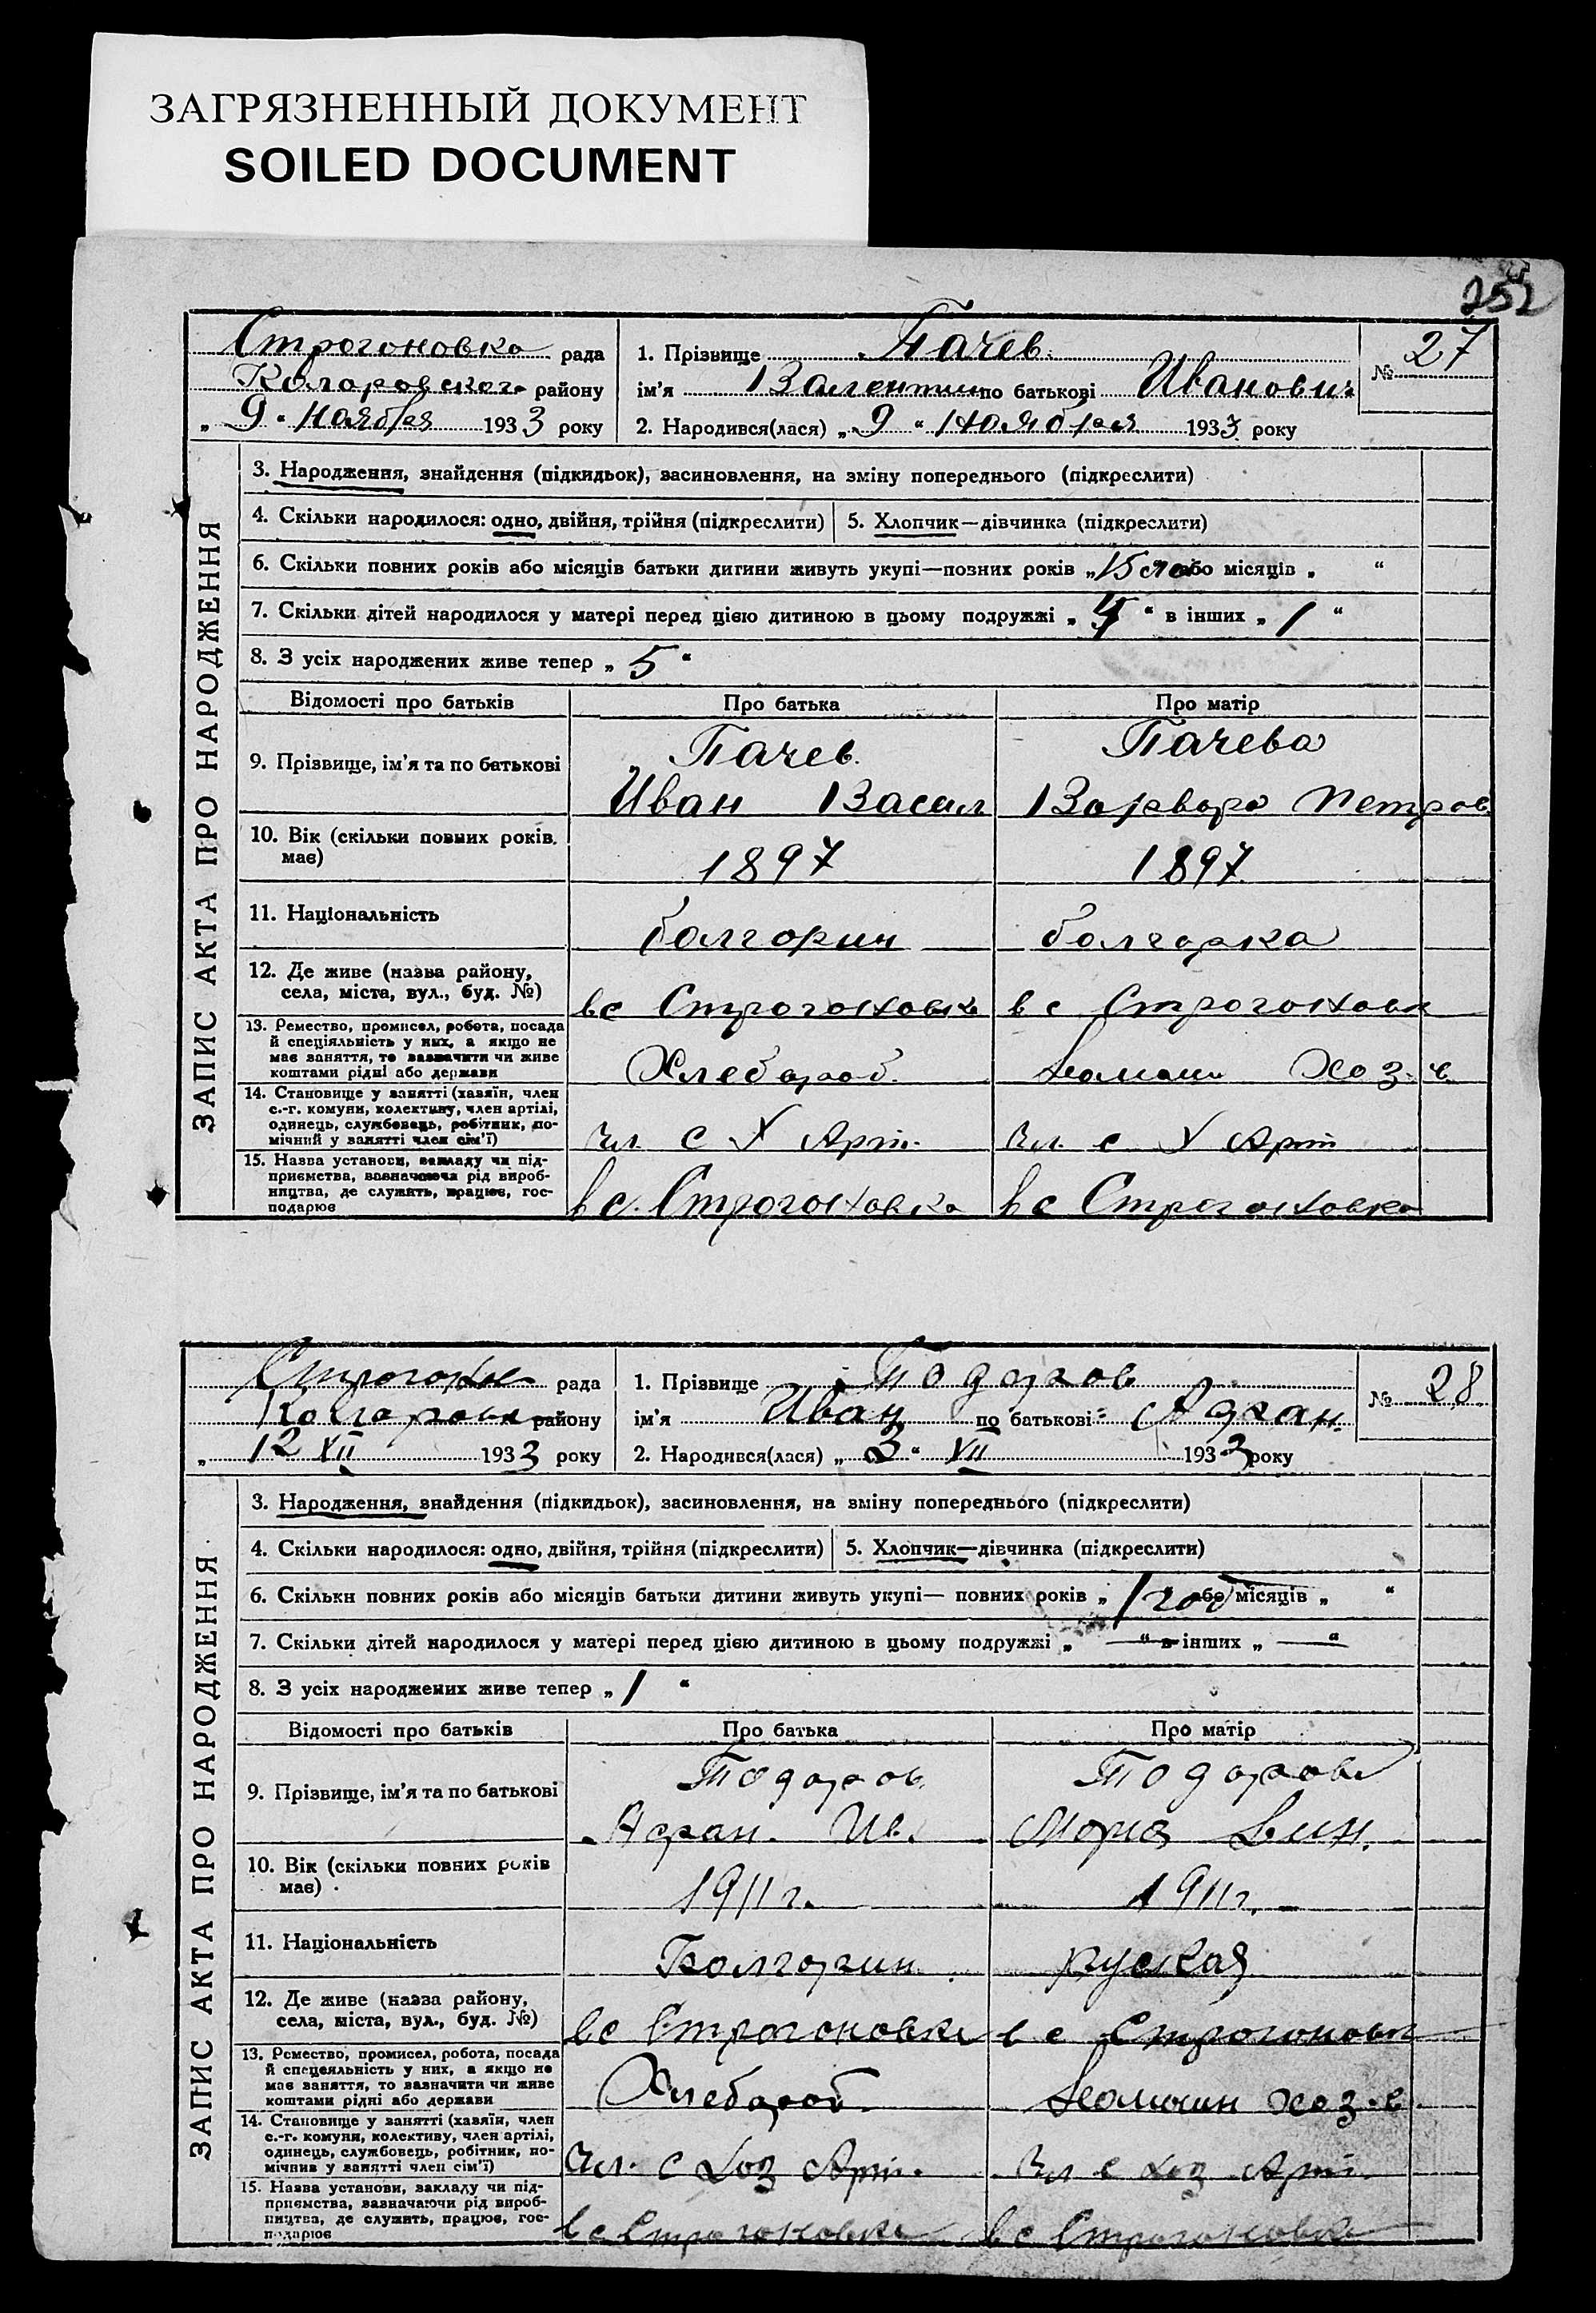 ЗАГРЯЗНЕННЫЙ ДОКУМЕНТ
SOILED DOCUMENT
252
Строгоновка рада
Коларовского району
„ 9 “ Ноября 1933 року
1. Прізвище Пачев
ім'я Валентин по батькові Иванович
2. Народився(лася) „ 9 “ Ноября 1933 року
№ 27
ЗАПИС АКТА ПРО НАРОДЖЕННЯ
3. Народження, знайдення (підкидьок), засиновлення, на зміну попереднього (підкреслити)
4. Скільки народилося: одно, двійня, трійня (підкреслити) 5. Хлопчик—дівчинка (підкреслити)
6. Скільки повних років або місяців батьки дитини живуть укупі—повних років „ 15 або місяців „ “
7. Скільки дітей народилося у матері перед цією дитиною в цьому подружжі „ “ в інших „ 1 “
8. З усіх народжених живе тепер „ 5 “
Відомості про батьків Про батька Про матір
9. Прізвище, ім'я та по батькові Пачев Пачева
Иван Васил Варвара Петров.
10. Вік (скільки повних років має) 1897 1897
11. Національність болгорин болгорка
12. Де живе (назва району,
села, міста, вул., буд. №) в с Строгоновке в с Строгоновк
13. Ремество, промисел, робота, посада
й спеціяльність у них, а якщо не
має заняття, то зазначити чи живе
коштами рідні або держави Хлебороб. хоз.
14. Становище у занятті (хазяїн, член
с.-г. комуни, колективу, член артілі,
одинець, службовець, робітник, по-
мічний у занятті член сім'ї) чл с Х Арт. чл с Х Арт
15. Назва установи, закладу чи під-
приємства, зазначаючи рід вироб-
ництва, де служить, працює, гос-
подарює в с. Строгоновка в с Строгоновка
рада
району
„ 12 XII 1933 року
1. Прізвище Тодоров
ім'я Иван по батькові
2. Народився(лася) „ 3 “ XII 1933 року
№ 28
ЗАПИС АКТА ПРО НАРОДЖЕННЯ
3. Народження, знайдення (підкидьок), засиновлення, на зміну попереднього (підкреслити)
4. Скільки народилося: одно, двійня, трійня (підкреслити) 5. Хлопчик—дівчинка (підкреслити)
6. Скільки повних років або місяців батьки дитини живуть укупі— повних років „ 1 год або місяців „ “
7. Скільки дітей народилося у матері перед цією дитиною в цьому подружжі „ — “ в інших „ — “
8. З усіх народжених живе тепер „ 1 “
Відомості про батьків Про батька Про матір
9. Прізвище, ім'я та по батькові Тодоров Тодорова
Ив. Мория
10. Вік (скільки повних років
має) 1911 г. 1911 г.
11. Національність Болгорин руская
12. Де живе (назва району,
села, міста, вул., буд. №) в с Строгоновке в с Строгоновк
13. Ремество, промисел, робота, посада
й спецеяльність у них, а якщо не
має заняття, то зазначити чи живе
коштами рідні або держави Хлебороб. хоз.
14. Становище у занятті (хазяїн, член
с.-г. комуни, колективу, член артілі,
одинець, службовець, робітник, по-
мічник у занятті член сім'ї) Чл. с хоз Арт. Чл с хоз Арт.
15. Назва установи, закладу чи під-
приємства, зазначаючи рід вироб-
ництва, де служить, працює, гос-
подарює в с Строгоновке в с Строгоновке